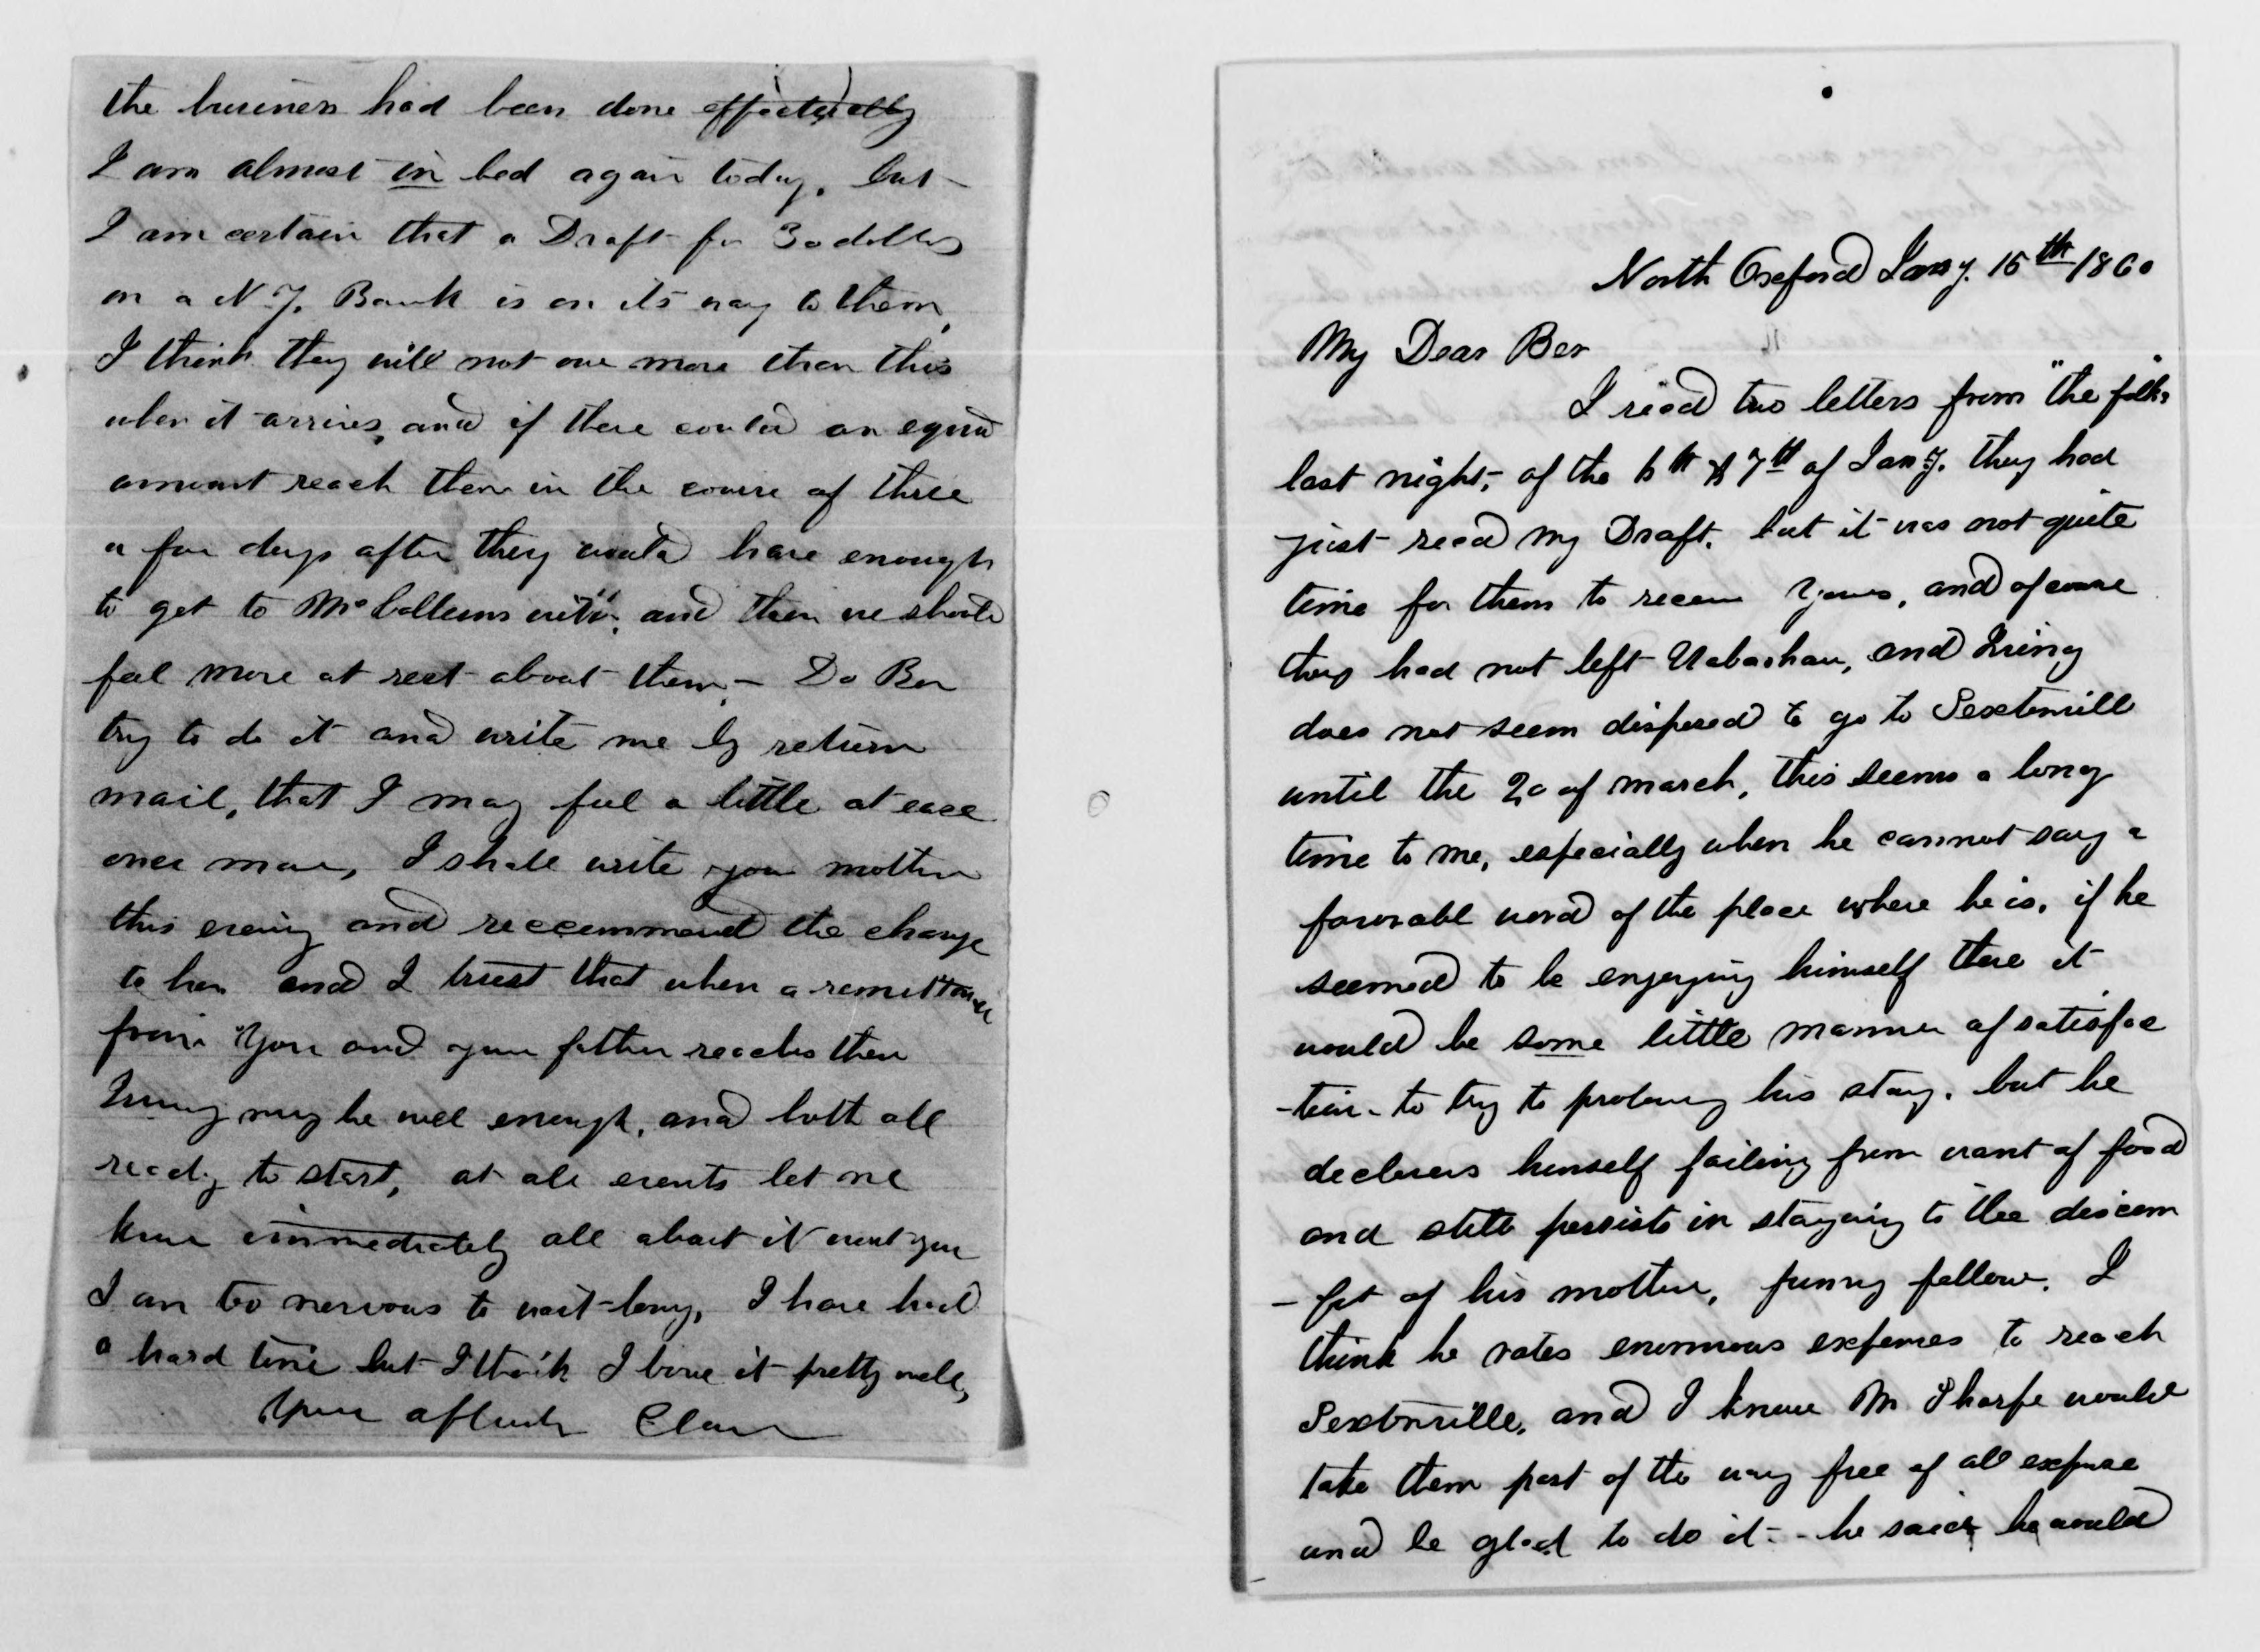 the business had been done effectually
I am almost in bed again today, but
I am certain that a Draft for 30 dollars
on a N.Y. Bank is on its way to them,
I think they will not owe more than this
when it arrives, and if there could an equal
amount reach them in the course of three
or four days after they would have enough
to get to McCollums with, and then we should
feel more at rest about them, - Do Ber
try to do it and write me by return
mail, that I may feel a little at ease
once more, I shall write your mother
this evening and reccommend the change
to her and I trust that when a remittance
from You and your father reaches them
Irving may be well enough, and both all
ready to start, at all events let me
know immediately all about it wont you
I am too nervous to wait long, I have had
a hard time but I think I bore it pretty well,
Your affect Clara
North Oxford Jany. 15th 1860
My Dear Ber
I recd two letters from "the folks"
last night, of the 6th & 7th of Jany. they had
just recd my Draft. but it was not quite
time for them to receive Yours, and of course
they had not left Wabashaw, and Irving
does not seem disposed to go to Sextonville
until the 20 of march, this seems a long
time to me, especially when he cannot say a
favorable word of the place where he is, if he
seemed to be enjoying himself there it
would be some little manner of satisfac
-tion to try to prolong his stay. but he
declares himself failing from want of food
and still persists in staying to the discom
-fort of his mother, funny fellow. I
think he rates enormous expenses to reach
Sextonville, and I know Mr Tharpe would
take them part of the way free of all expense
and be glad to do it - he said he would